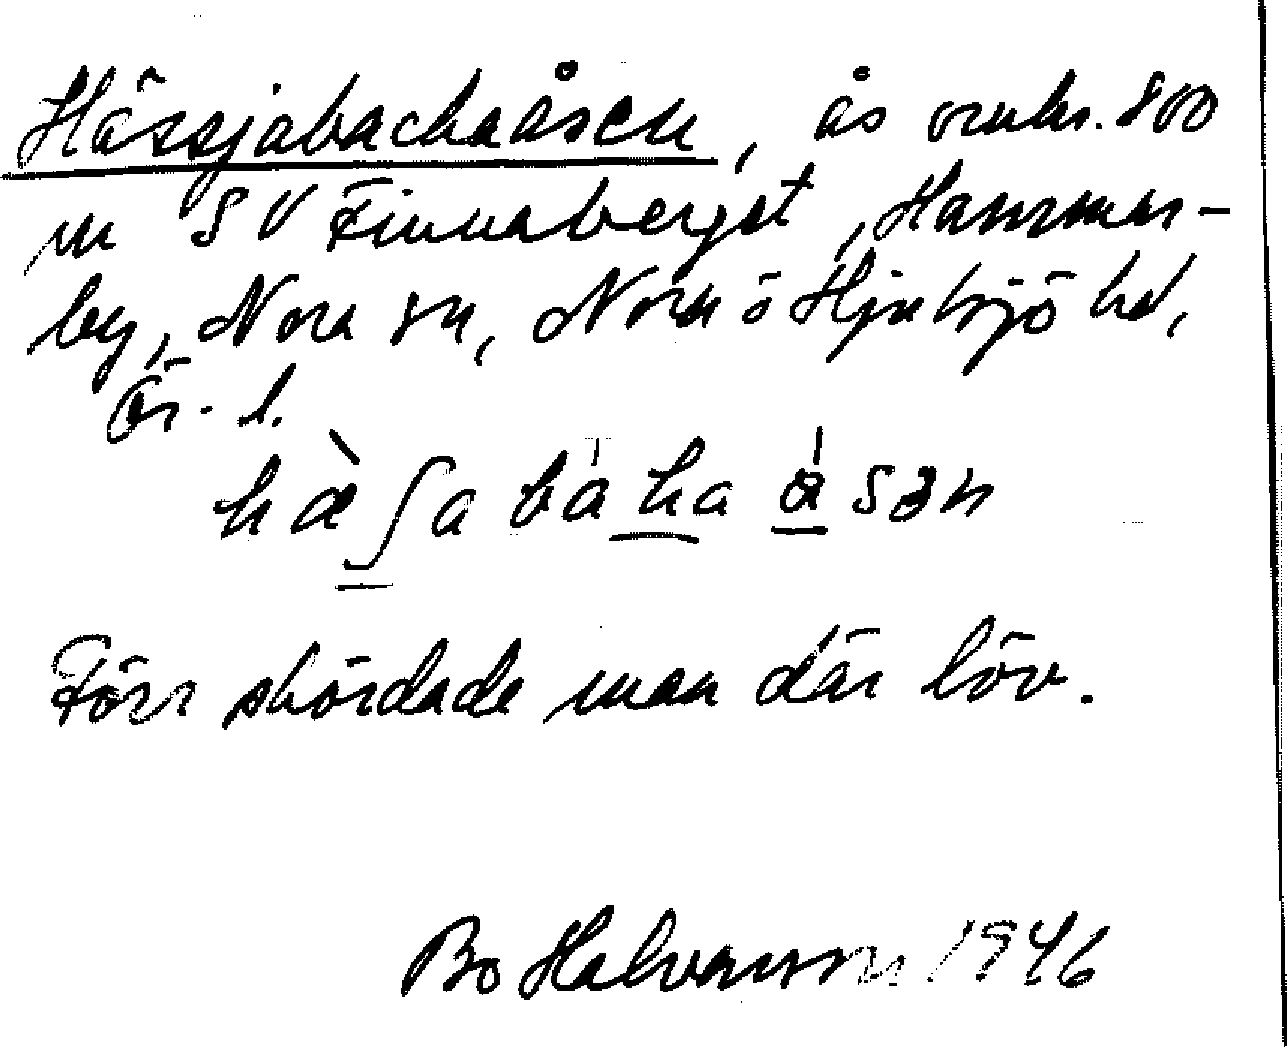 Hässjabackaåsen, ås omkr. 800
m SV Finnaberget, Hammar-
by, Nora sn, Nora o Hjulsjö hd,
Ör. l.
hæ̀ʃabakaåsən
Förr skördade man där löv.
Bo Halvarsson 1946